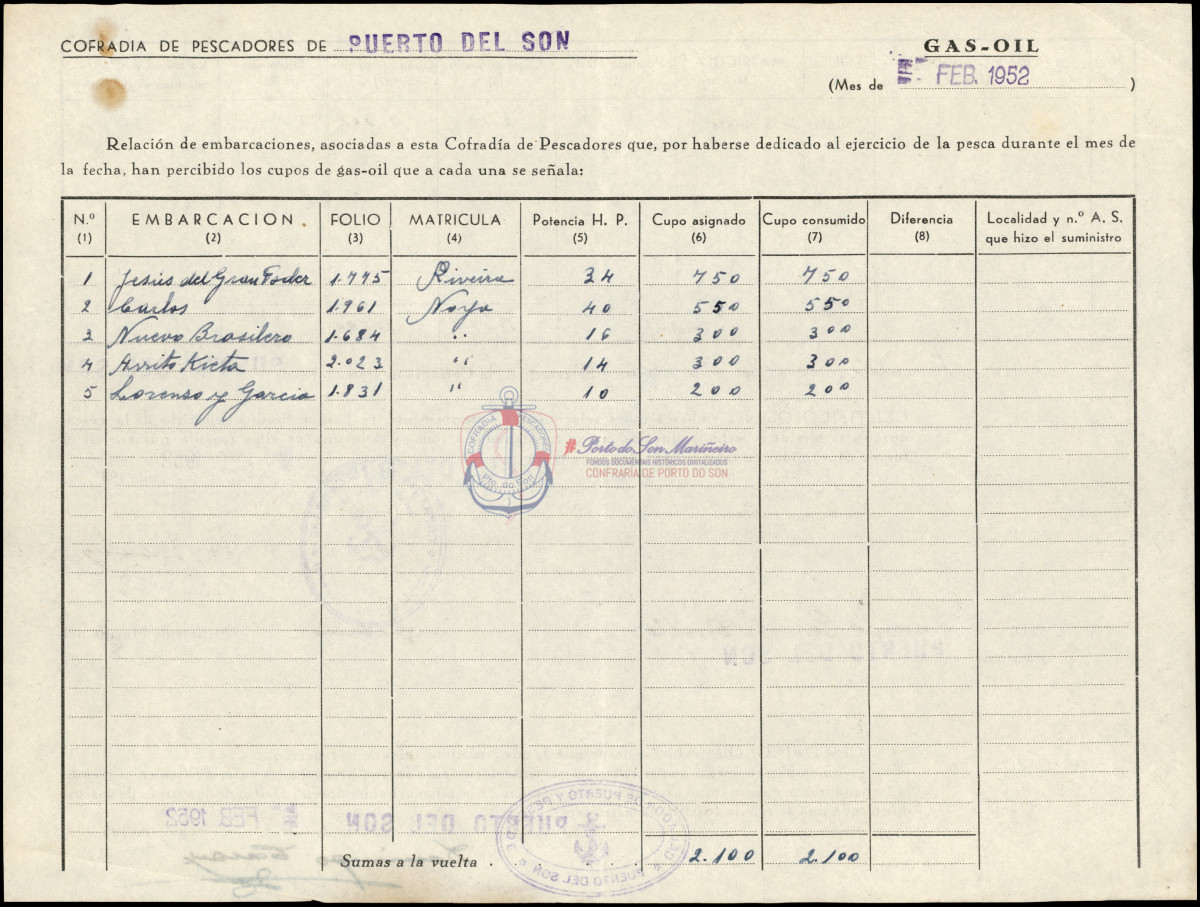 COFRADIA DE PESCADORES DE PUERTO DEL SON
GAS-OIL
(Mes de FEB. 1952 )
Relación de embarcaciones, asociadas a esta Cofradía de Pescadores que, por haberse dedicado al ejercicio de la pesca durante el mes de
la fecha, han percibido los cupos de gas-oil que a cada una se señala:
N.º EMBARCACION. FOLIO MATRICULA Potencia H. P. Cupo asignado Cupo consumido Diferencia Localidad y n.º A. S.
(1) (2) (3) (4) (5) (6) (7) (8) que hizo el suministro
1 Jesús del Gran Poder 1.775 Riveira 34 750 750
2 Carlos 1.961 Noya 40 550 550
3 Nuevo Brasilero 1.684 " 16 300 300
4 2.023 " 14 300 300
5 Lorenso y Garcia 1.831 " 10 200 200
COFRADIA PESCADORES
Pto. do Son
#Porto do Son Mariñeiro
FONDOS DOCUMENTAIS HISTÓRICOS DIGITALIZADOS
CONFRARÍA DE PORTO DO SON
PUERTO DEL SON
FEB. 1952
PUERTO DEL SON
PUERTO DEL SON
Sumas a la vuelta . . . 2.100 2.100